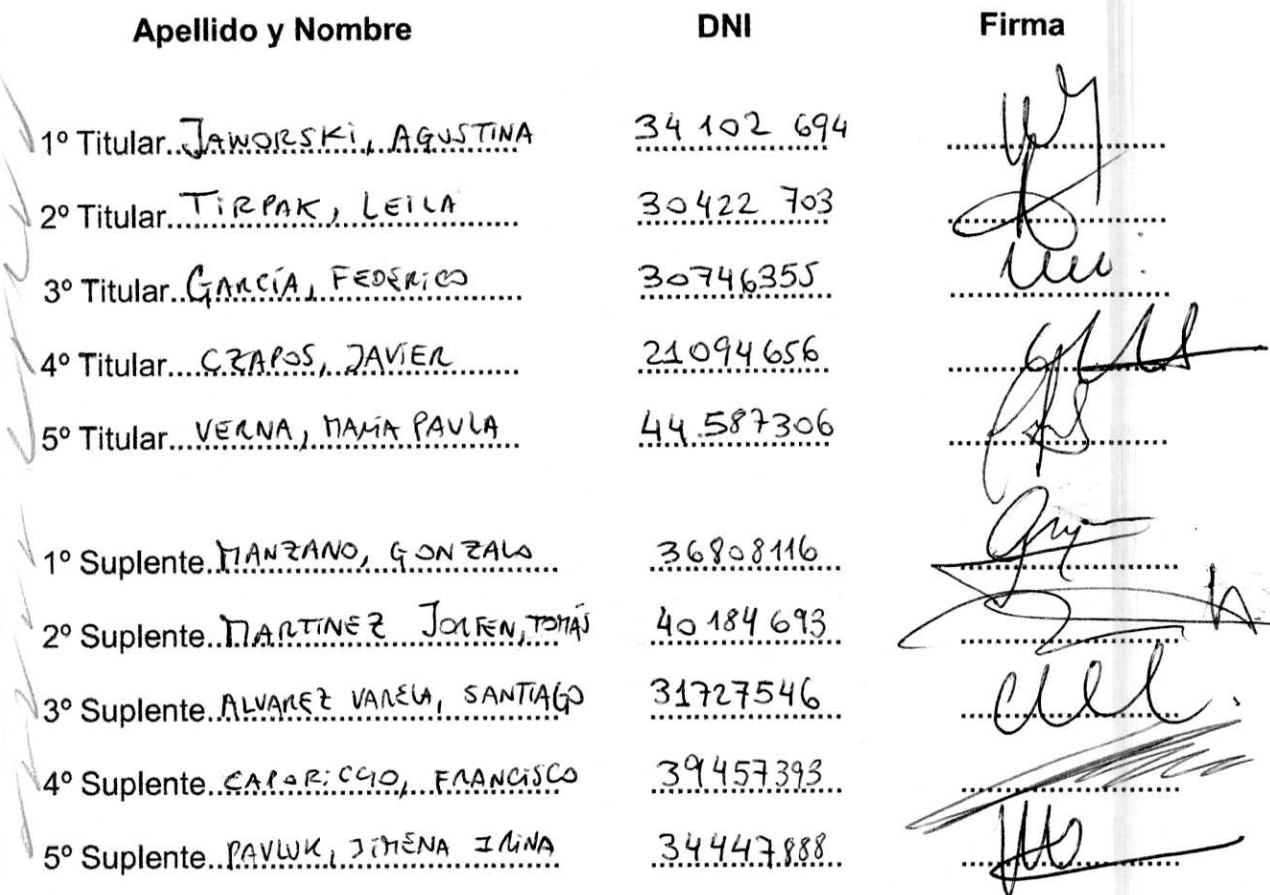 Apellido y Nombre DNI Firma
1º Titular JAWORSKI, AGUSTINA 34 102 694
2º Titular TIRPAK, LEILA 30422 703
3º Titular GARCÍA, FEDERICO 30746355
4º Titular CZAPOS, JAVIER 21094656
5º Titular VERNA, MARÍA PAULA 44.587306
1º Suplente MANZANO, GONZALO 36808116
2º Suplente MARTINEZ TOMÁS 40 184 693
3º Suplente ALVAREZ VARELA, SANTIAGO 31727546
4º Suplente CAPORICCIO, FRANCISCO 39457393
5º Suplente PAVLUK, JIMENA IRINA 34447888